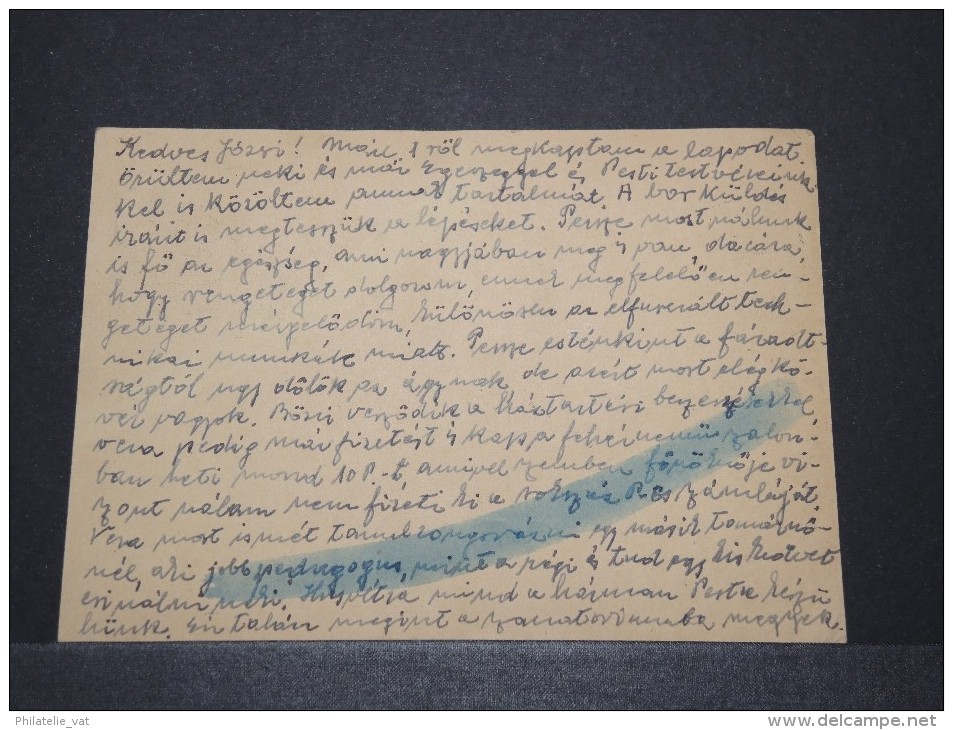 Kedves Józsi! Márc 1 ről megkaptam a lapodat.
Örültem neki és már Egerszeggel és Pesti testvéreink-
kel is közöltem annak tartalmát. A bor küldés
iránt is megtesszük a lépéseket. Persze most nálunk
is fő az egészség, ami nagyjában meg is van, dacára,
hogy rengeteget dolgozom, ennek megfelelően ren-
geteget mérgelődöm, különösen az elfuserált tech-
nikai munkák miatt. Persze esténkint a fáradt-
ságtól úgy dőlök az ágynak de azért most elég kö-
vér vagyok. Bözsi vesződik a háztartási
Vera pedig már fizetést is kap a fehérnemű szalon-
ban heti 10 P.-t, amivel szemben főnöknője vi-
szont nálam nem fizeti ki a P-és számláját.
Vera most ismét tanul zongorázni egy másik tanárnő-
nél, aki jobb pedagógus, mint a régi és tud egy kis kedvet
csinálni neki. Húsvétra mind a hárman Pestre készü
lünk. Én talán megint a szanatoriumba megyek.
Philatelie_vat
www.delcampe.net